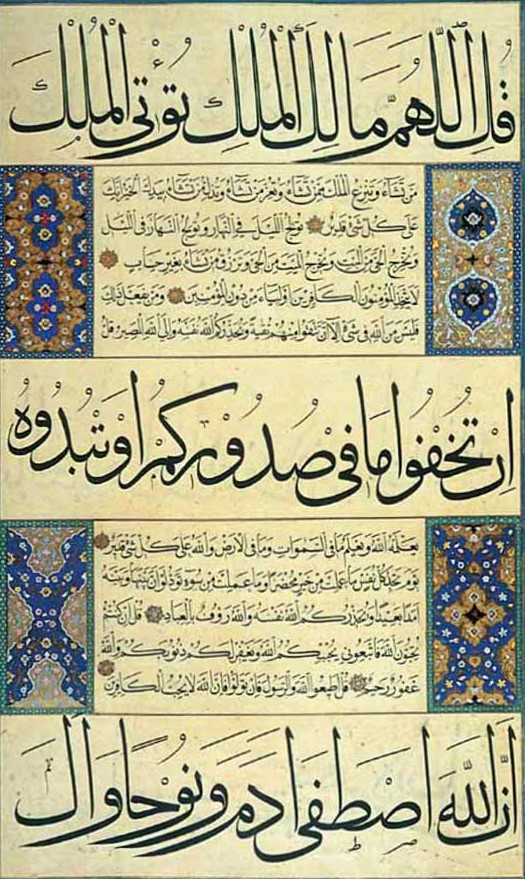 قُلِ اللَّهُمَّ مَالِكَ الْمُلْكِ تُؤْتِي الْمُلْكَ
مَن تَشَاءُ وَتَنزِعُ الْمُلْكَ مِمَّن تَشَاءُ وَتُعِزُّ مَن تَشَاءُ وَتُذِلُّ مَن تَشَاءُ بِيَدِكَ الْخَيْرُ إِنَّكَ
عَلَىٰ كُلِّ شَيْءٍ قَدِيرٌ تُولِجُ اللَّيْلَ فِي النَّهَارِ وَتُولِجُ النَّهَارَ فِي اللَّيْلِ
وَتُخْرِجُ الْحَيَّ مِنَ الْمَيِّتِ وَتُخْرِجُ الْمَيِّتَ مِنَ الْحَيِّ وَتَرْزُقُ مَن تَشَاءُ بِغَيْرِ حِسَابٍ
لَا يَتَّخِذِ الْمُؤْمِنُونَ الْكَافِرِينَ أَوْلِيَاءَ مِن دُونِ الْمُؤْمِنِينَ وَمَن يَفْعَلْ ذَٰلِكَ
فَلَيْسَ مِنَ اللَّهِ فِي شَيْءٍ إِلَّا أَن تَتَّقُوا مِنْهُمْ تُقَاةً وَيُحَذِّرُكُمُ اللَّهُ نَفْسَهُ وَإِلَى اللَّهِ الْمَصِيرُ قُلْ
إِن تُخْفُوا مَا فِي صُدُورِكُمْ أَوْ تُبْدُوهُ
يَعْلَمْهُ اللَّهُ وَيَعْلَمُ مَا فِي السَّمَوَاتِ وَمَا فِي الْأَرْضِ وَاللَّهُ عَلَىٰ كُلِّ شَيْءٍ قَدِيرٌ
يَوْمَ تَجِدُ كُلُّ نَفْسٍ مَا عَمِلَتْ مِنْ خَيْرٍ مُحْضَرًا وَمَا عَمِلَتْ مِن سُوءٍ تَوَدُّ لَوْ أَنَّ بَيْنَهَا وَبَيْنَهُ
أَمَدًا بَعِيدًا وَيُحَذِّرُكُمُ اللَّهُ نَفْسَهُ وَاللَّهُ رَءُوفٌ بِالْعِبَادِ قُلْ إِن كُنتُمْ
تُحِبُّونَ اللَّهَ فَاتَّبِعُونِي يُحْبِبْكُمُ اللَّهُ وَيَغْفِرْ لَكُمْ ذُنُوبَكُمْ وَاللَّهُ
غَفُورٌ رَحِيمٌ قُلْ أَطِيعُوا اللَّهَ وَالرَّسُولَ فَإِن تَوَلَّوْا فَإِنَّ اللَّهَ لَا يُحِبُّ الْكَافِرِينَ
إِنَّ اللَّهَ اصْطَفَىٰ آدَمَ وَنُوحًا وَآلَ